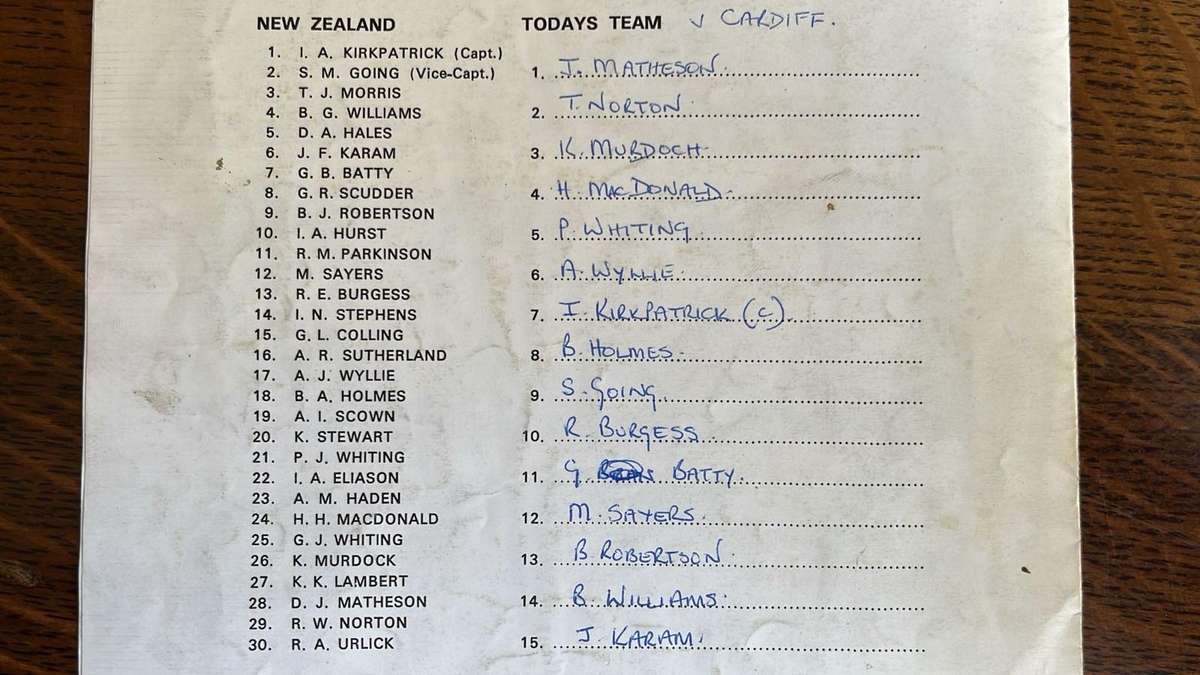 NEW ZEALAND
1. I. A. KIRKPATRICK (Capt.)
2. S. M. GOING (Vice-Capt.)
3. T. J. MORRIS
4. B. G. WILLIAMS
5. D. A. HALES
6. J. F. KARAM
7. G. B. BATTY
8. G. R. SCUDDER
9. B. J. ROBERTSON
10. I. A. HURST
11. R. M. PARKINSON
12. M. SAYERS
13. R. E. BURGESS
14. I. N. STEPHENS
15. G. L. COLLING
16. A. R. SUTHERLAND
17. A. J. WYLLIE
18. B. A. HOLMES
19. A. I. SCOWN
20. K. STEWART
21. P. J. WHITING
22. I. A. ELIASON
23. A. M. HADEN
24. H. H. MACDONALD
25. G. J. WHITING
26. K. MURDOCK
27. K. K. LAMBERT
28. D. J. MATHESON
29. R. W. NORTON
30. R. A. URLICK
TODAYS TEAM v CARDIFF.
1. J. MATHESON
2. T. NORTON
3. K. MURDOCH
4. H. MACDONALD
5. P. WHITING
6. A. WYLLIE
7. I. KIRKPATRICK (C)
8. B. HOLMES
9. S. GOING
10. R. BURGESS
11. G BATTY
12. M. SAYERS
13. B. ROBERTSON
14. B. WILLIAMS
15. J. KARAM